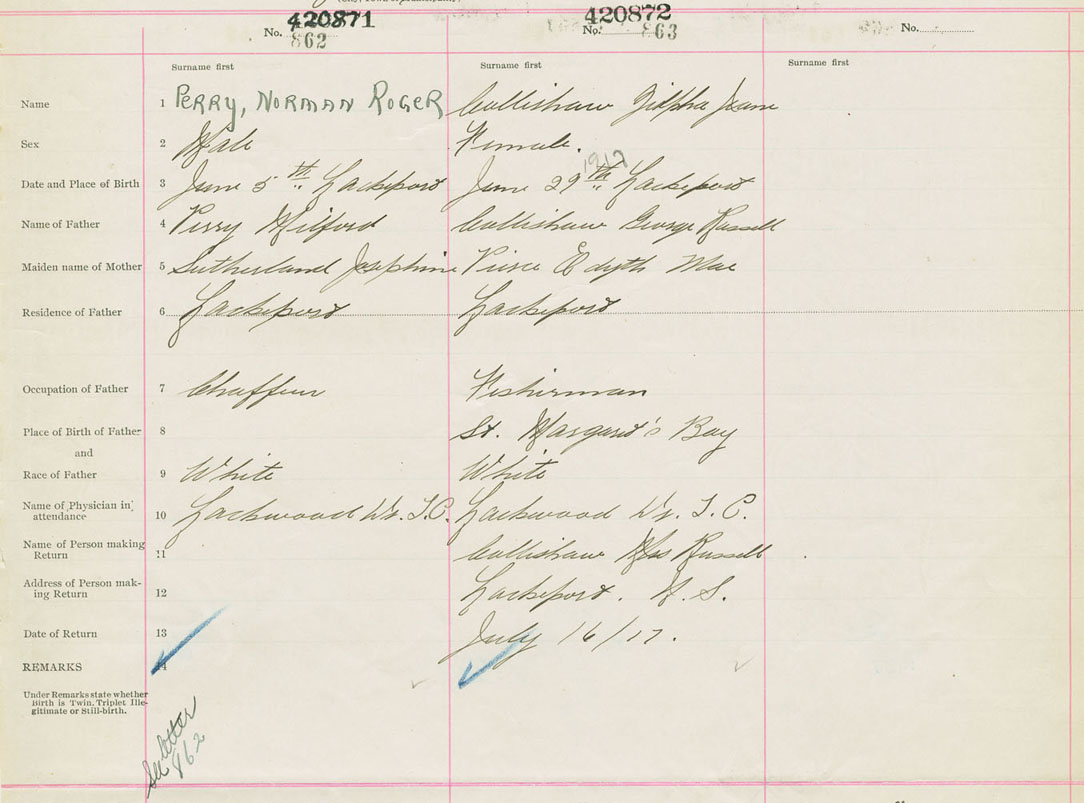 No. 420871 862
No. 420872 863
No.
Surname first
Surname first
Surname first
Name 1 PERRY, NORMAN ROGER Collishaw Zilpha Jean
Sex 2 Male Female.
1917
Date and Place of Birth 3 June 5th Lockeport June 29th Lockeport
Name of Father 4 Perry Milford Collishaw George Russell
Maiden name of Mother 5 Sutherland Josephine Pierce Edyth Mae
Residence of Father 6 Lockeport Lockeport
Occupation of Father 7 Chaffeur Fisherman
Place of Birth of Father 8 St. Margaret's Bay
and
Race of Father 9 White White
Name of Physician in
attendance 10 Lockwood Dr. T.C. Lockwood Dr. T. C.
Name of Person making
Return 11 Collishaw Mrs Russell
Address of Person mak-
ing Return 12 Lockeport. N. S.
Date of Return 13 July 16/17.
REMARKS 14
Under Remarks state whether
Birth is Twin, Triplet Ille-
gitimate or Still-birth.
See letter
862